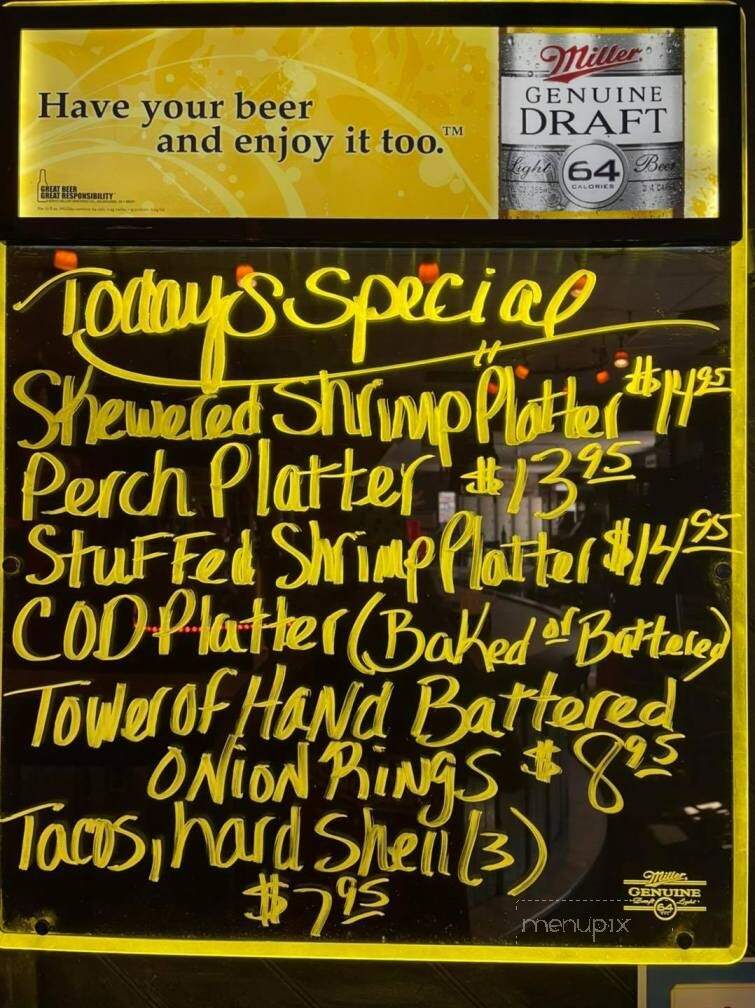 Have your beer
and enjoy it too.™
GREAT BEER
GREAT RESPONSIBILITY
Miller
GENUINE
DRAFT
Light 64 Beer
CALORIES
Todays Special
Skewered Shrimp Platter $14 95
Perch Platter $13 95
Stuffed Shrimp Platter $14 95
COD Platter (Baked or Battered)
Tower of Hand Battered
Onion Rings $8 95
Tacos, hard shell (3)
$7 95
Miller
GENUINE
Draft 64 Light
menupix